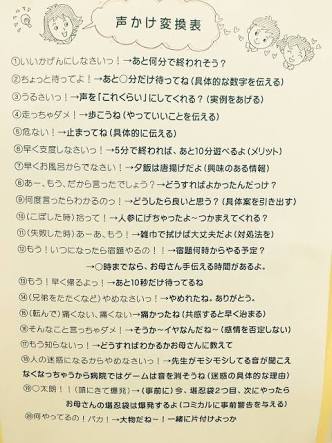 声かけ変換表
①いいかげんにしなさいっ！→あと何分で終われそう？
②ちょっと待ってよ！→あと○分だけ待ってね（具体的な数字を伝える）
③うるさいっ！→声を「これくらい」にしてくれる？（実例をあげる）
④走っちゃダメ！→歩こうね（やっていいことを伝える）
⑤危ない！→止まってね（具体的に伝える）
⑥早く支度しなさいっ！→5分で終われば、あと10分遊べるよ（メリット）
⑦早くお風呂からでなさい！→夕飯は唐揚げだよ（興味のある情報）
⑧あー、もう、だから言ったでしょう？→どうすればよかったんだっけ？
⑨何度言ったらわかるのっ！→どうしたら良いと思う？（具体案を引き出す）
⑩（こぼした時）拾って！→人参にげちゃったよ～つかまえてくれる？
⑪（失敗した時）あーあ、もう！→雑巾で拭けば大丈夫だよ（対処法を）
⑫もう！いつになったら宿題やるの！！→宿題何時からやる予定？
→○時までなら、お母さん手伝える時間があるよ。
⑬もう！早く帰るよっ！→あと10秒だけ待ってるね
⑭（兄弟をたたくなど）やめなさいっ！→やめれたね。ありがとう。
⑮（転んで）痛くない、痛くない→痛かったね（共感すると早く治まる）
⑯そんなこと言っちゃダメ！→そうか～イヤなんだね～（感情を否定しない）
⑰もう知らないっ！→どうすればわかるかお母さんに教えて
⑱人の迷惑になるからやめなさいっ！→先生がモシモシしてる音が聞こえ
なくなっちゃうから病院ではゲームは音を消そうね（迷惑の具体的な理由）
⑲○太朗！！（頭にきて爆発）→（事前に）今、堪忍袋2つ目、次にやったら
お母さんの堪忍袋は爆発するよ（コミカルに事前警告を与える）
⑳何やってるの！バカ！→大物だね～！一緒に片付けよっか